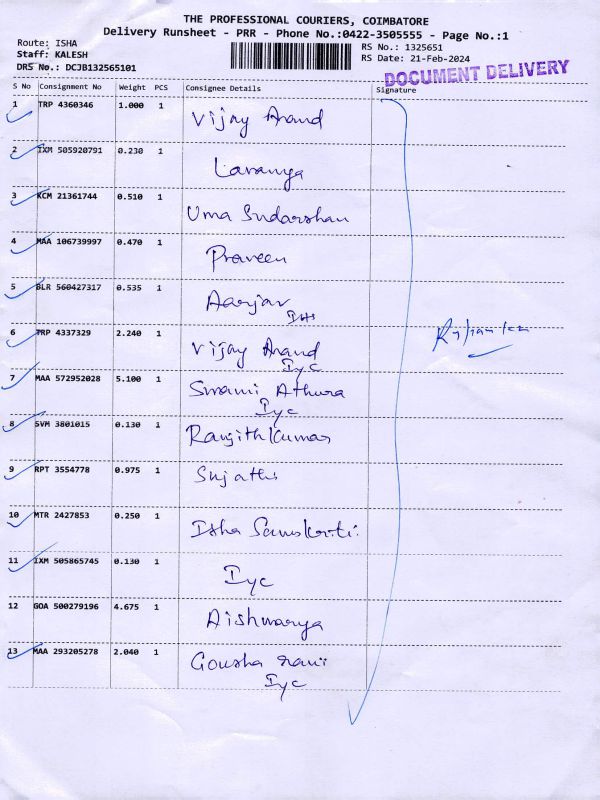 THE PROFESSIONAL COURIERS, COIMBATORE
Delivery Runsheet - PRR - Phone No.:0422-3505555 - Page No.:1
Route: ISHA
Staff: KALESH
DRS No.: DCJB132565101
RS No.: 1325651
RS Date: 21-Feb-2024
DOCUMENT DELIVERY
S No Consignment No Weight PCS Consignee Details Signature
1 TRP 4360346 1.000 1 Vijay Anand
2 IXM 505920791 0.230 1 Lavanya
3 KCM 21361744 0.510 1 Uma Sudarshan
4 MAA 106739997 0.470 1 Praveen
5 BLR 560427317 0.535 1 Aarjav
6 TRP 4337329 2.240 1 Vijay Anand
Iyc
7 MAA 572952028 5.100 1 Swami Athura
Iyc
8 SVM 3801015 0.130 1 Ranjithkumar
9 RPT 3554778 0.975 1 Sujatha
10 MTR 2427853 0.250 1 Isha Samskriti
11 IXM 505865745 0.130 1 Iyc
12 GOA 500279196 4.675 1 Aishwarya
13 MAA 293205278 2.040 1 Gousha rani
Iyc